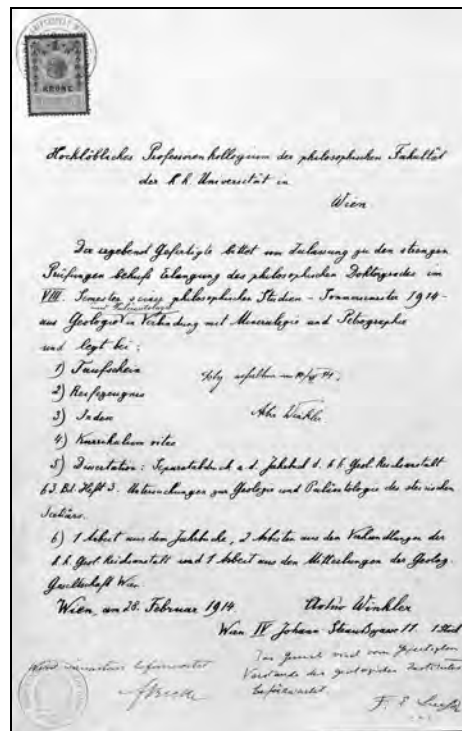 KRONE
Hochlöbliches Professorenkollegium der philosophischen Fakultät
der k. k. Universität in
Wien
Der ergebend Gefertigte bittet um Zulassung zu den strengen
Prüfungen behufs Erlangung des philosophischen Doktorgrades im
VIII. Semester seiner philosophischen Studien - Sommersemester 1914 -
und Paläontologie
aus Geologie in Verbindung mit Mineralogie und Petrographie
und legt bei:
1) Taufschein
2) Reifezeugnis
3) Index
Winkler
4) Kurrikulum vitae
5) Dissertation: Separatabdruck a. d. Jahrbuch d. k. k. Geol. Reichsanstalt
63. Bd. Heft 3. Untersuchungen zur Geologie und Paläontologie des steirischen
Tertiärs.
6) 1 Arbeit aus dem Jahrbuche, 2 Arbeiten aus den Verhandlungen der
k. k. Geol. Reichsanstalt und 1 Arbeit aus den Mitteilungen der Geolog.
Gesellschaft Wien.
Wien, am 28. Februar 1914.
Artur Winkler
Wien IV Johann Straußgasse 11
Das Gesuch wird vom Gefertigten
Vorstande des geologischen Institutes
befürwortet
Wird wärmstens befürwortet
F. Becke
F. E. Suess